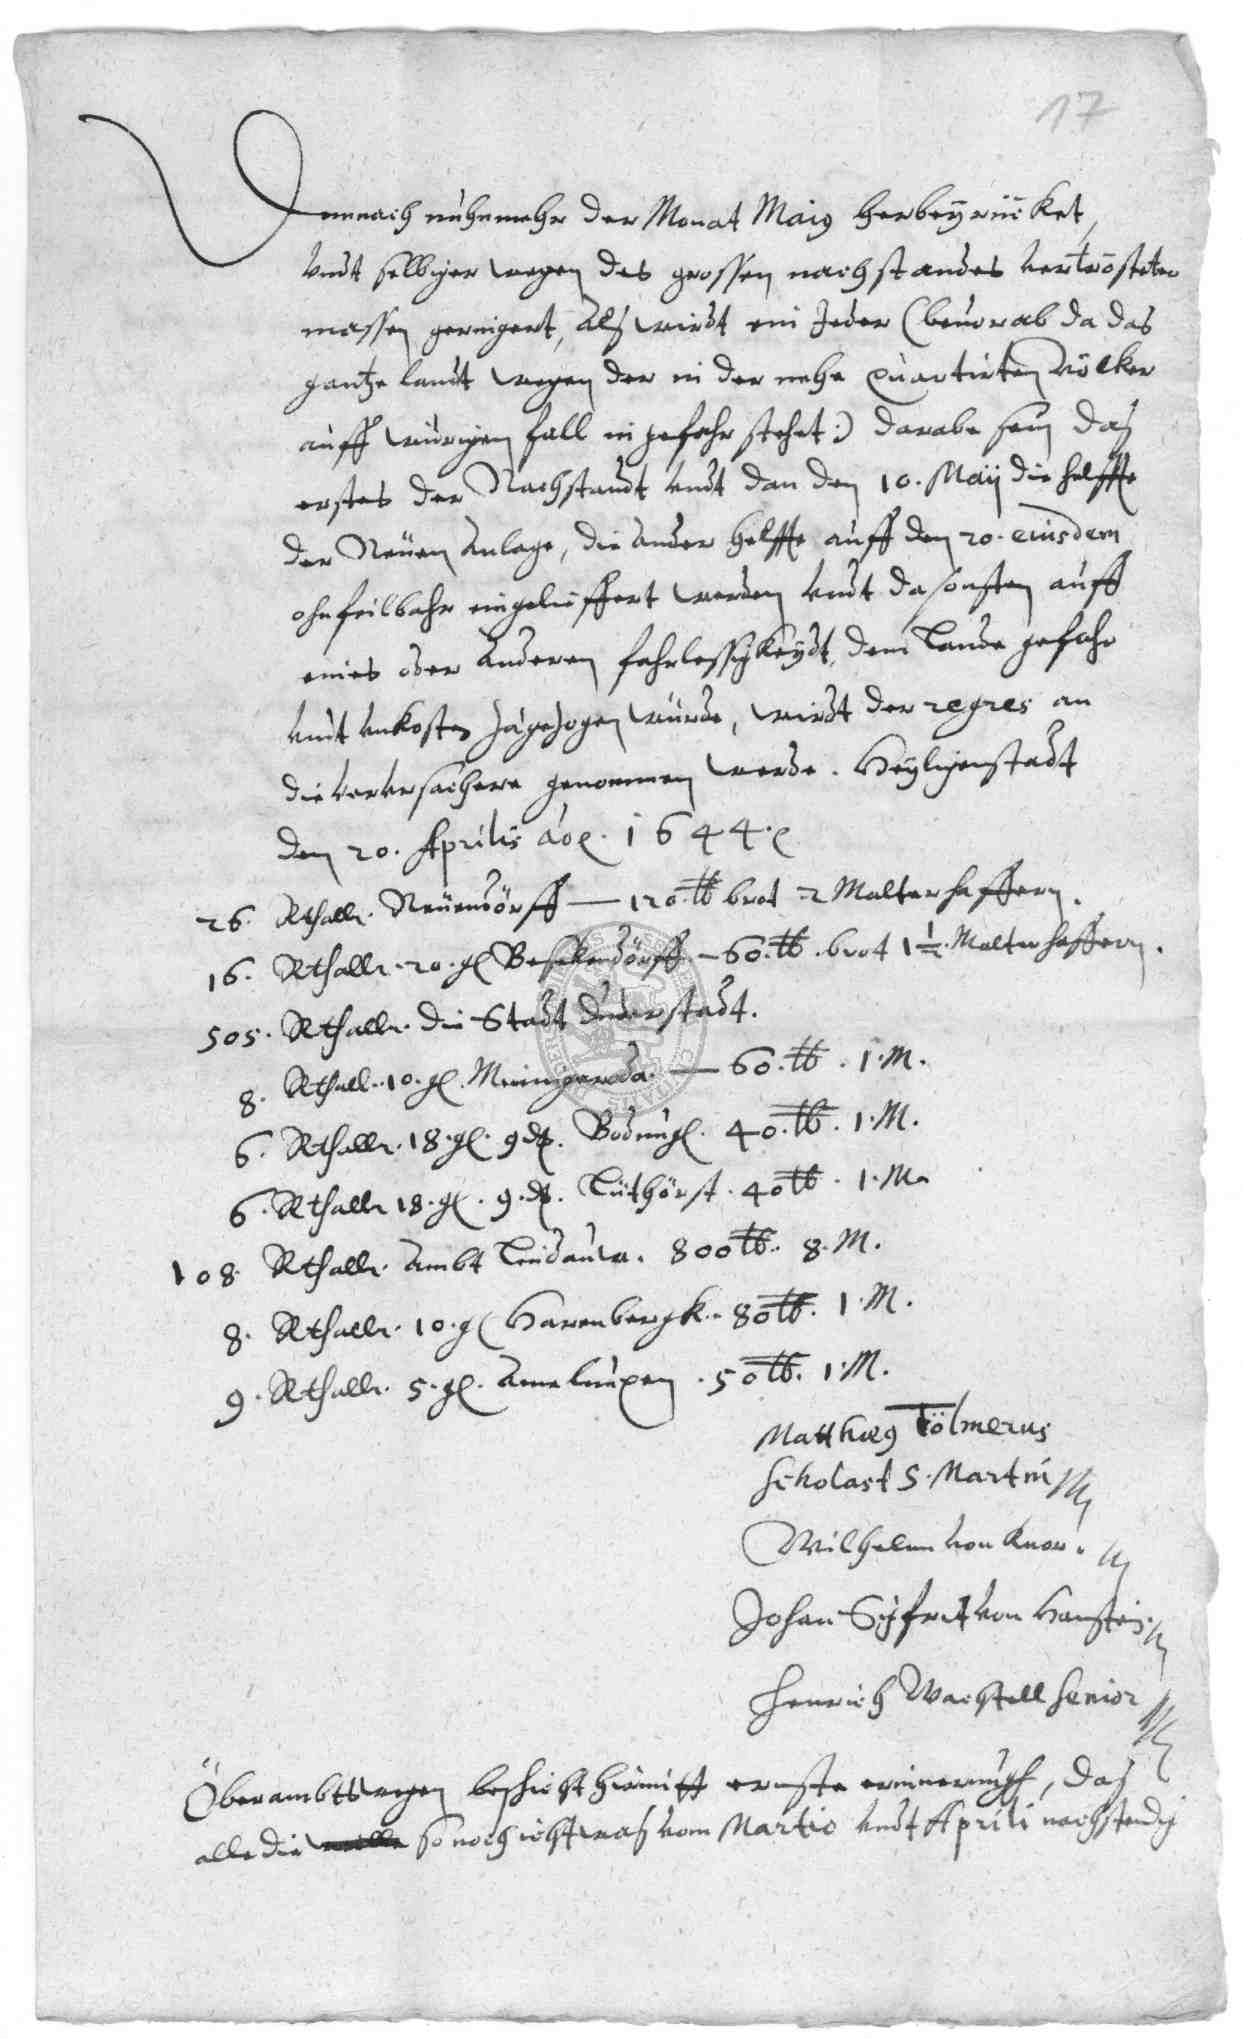 17
Demnach nuhnmehr der Monat Maius herbeÿrücket,
vndt selbiger wegen des grossen nachstandes vertrösteter
massen geringert, Alß wirdt ein Jeder (beuorab da das
gantze landt wegen der in der nehe quartirten völcker
auff wiedrigen fall in gefahr stehet:) darabe sein das
erstes der Nachstandt vndt dan den 10. Maÿ die helffte
der Neüen Anlage, die Ander helffte auff den 20. eiusdem
ohnfeilbahr eingelieffert werden vndt da sonsten auff
eines oder Anderen fahrlessigkeÿdt, dem Lande gefahr
vndt vnkosten zugezogen würde, wirdt der regres an
die verursachere genommen werde. Heyligenstadt
den 20. Aprilis ao. 1644.
26. Rthall. Neüendörff — 120. lb brot 2 Malter haffern.
16. Rthall. 20. gl Besekendörff — 60. lb. brot 1 1/2. Malter haffern.
505. Rthall. die Stadt Duderstadt.
8. Rthall. 10. gl. Mingeroda. — 60. lb. 1. M.
6. Rthall. 18. gl. 9 d. Bodung. 40. lb. 1. M.
6. Rthall. 18. gl. 9. d. Lüthörst. 40 lb. 1. M.
108. Rthall. Ambt Lindauw. 800 lb. 8. M.
8. Rthall. 10. gl Harenbergk. 80 lb. 1. M.
9. Rthall. 5. gl. Amelunxen. 50 lb. 1. M.
Matthaeus Tölmerus
Scholast S. Martini
Wilhelm von Knor.
Johan Sifrit von Hanstein
Henrich Wachstell Senior
Oberambtswegen beschicht hirmitt ernste erinnerungh, das
alle die so noch ichtwas vom Martio vndt Aprili nachstendig